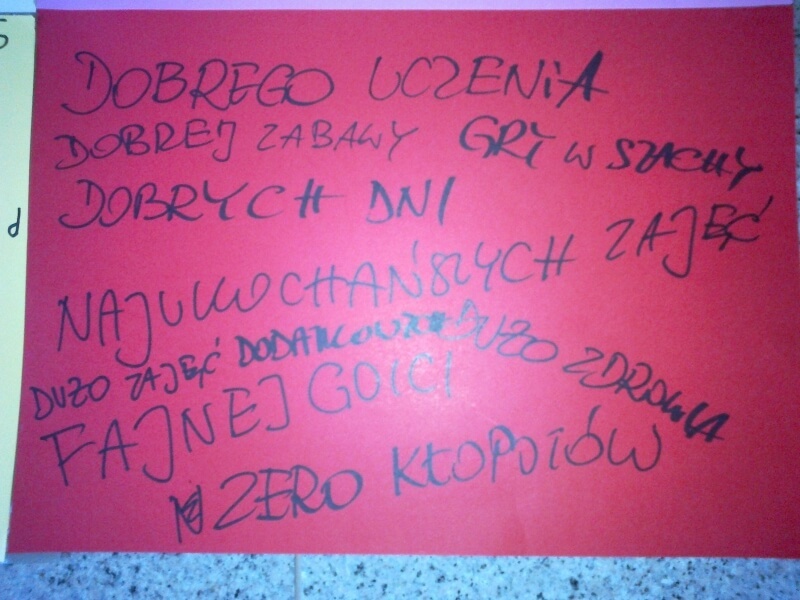 DOBREGO UCZENIA
DOBREJ ZABAWY GRY W SZACHY
DOBRYCH DNI
NAJUKOCHAŃSZYCH ZAJĘĆ
DUŻO ZAJĘĆ DODATKOWZCH DUŻO ZDROWIA
FAJNEJ GOICI
ZERO KŁOPOTÓW
d